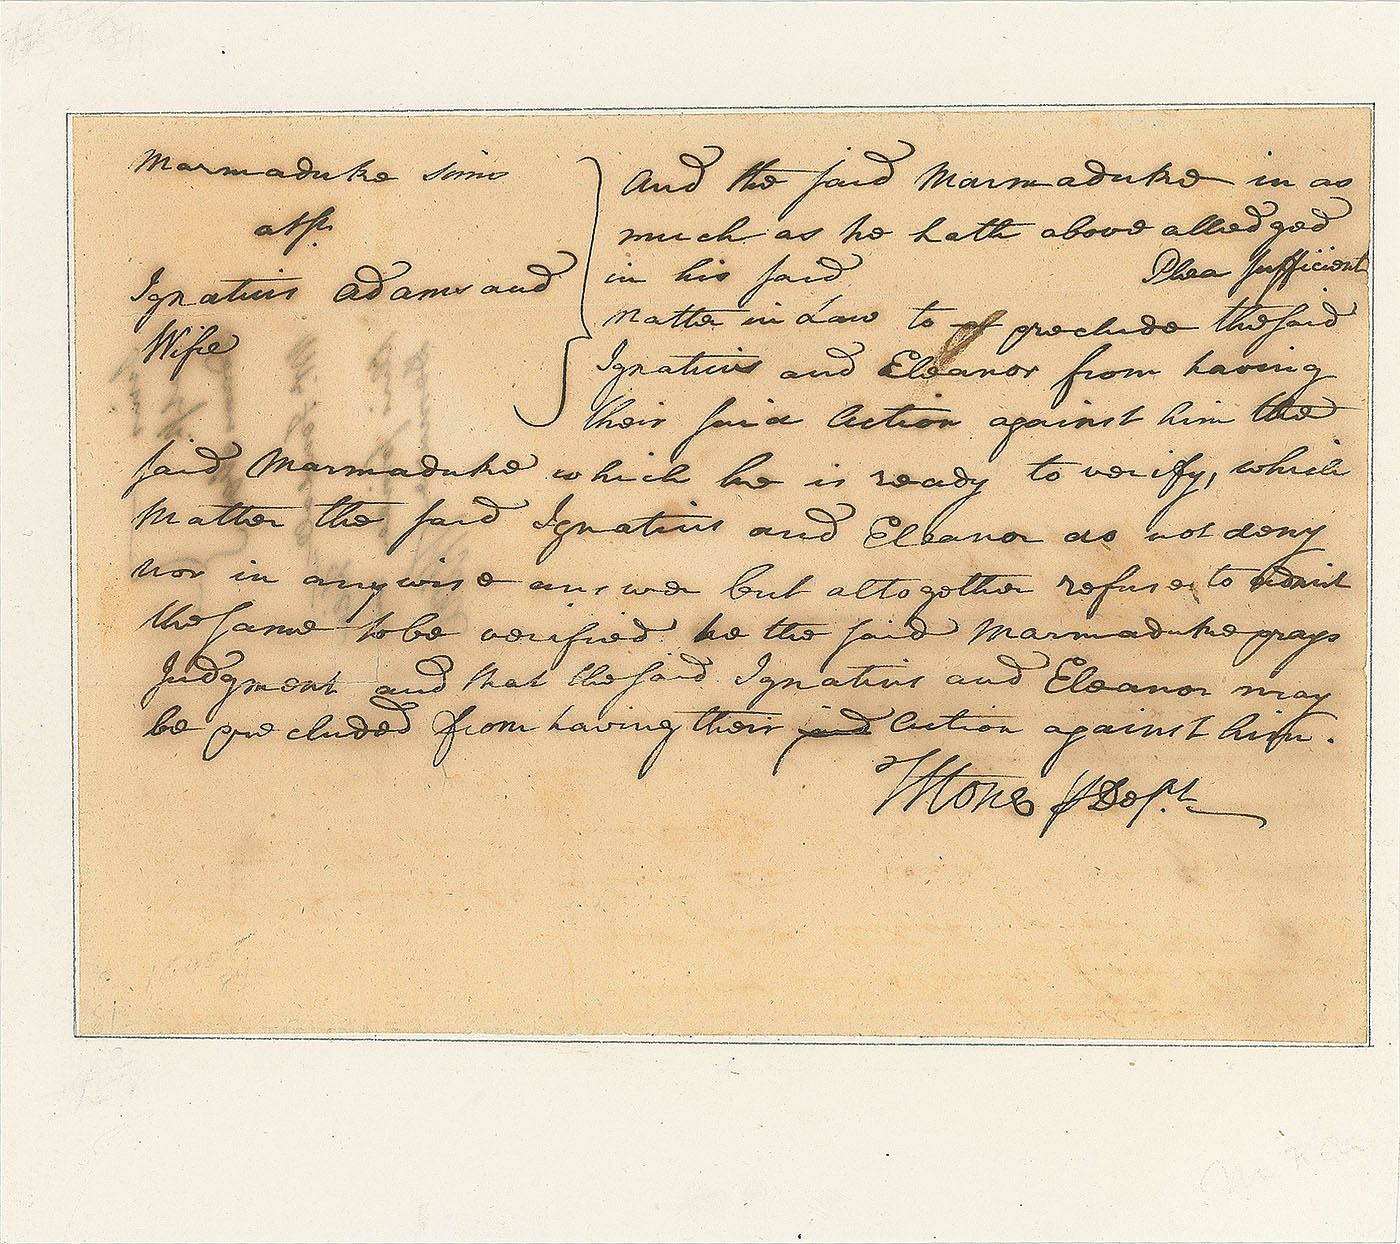 Marmaduke Sims
ats
Ignatius Adams and
Wife
And the said Marmaduke in as
much as he hath above alledged
in his said Plea sufficient
Matter in Law to preclude the said
Ignatius and Eleanor from having
their said Action against him the
said Marmaduke which he is ready to verify, which
Matter the said Ignatius and Eleanor do not deny
nor in anywise answer but altogether refuse to admit
the same to be verified he the said Marmaduke prays
Judgment and that the said Ignatius and Eleanor may
be precluded from having their said Action against him.
TStone p Deft